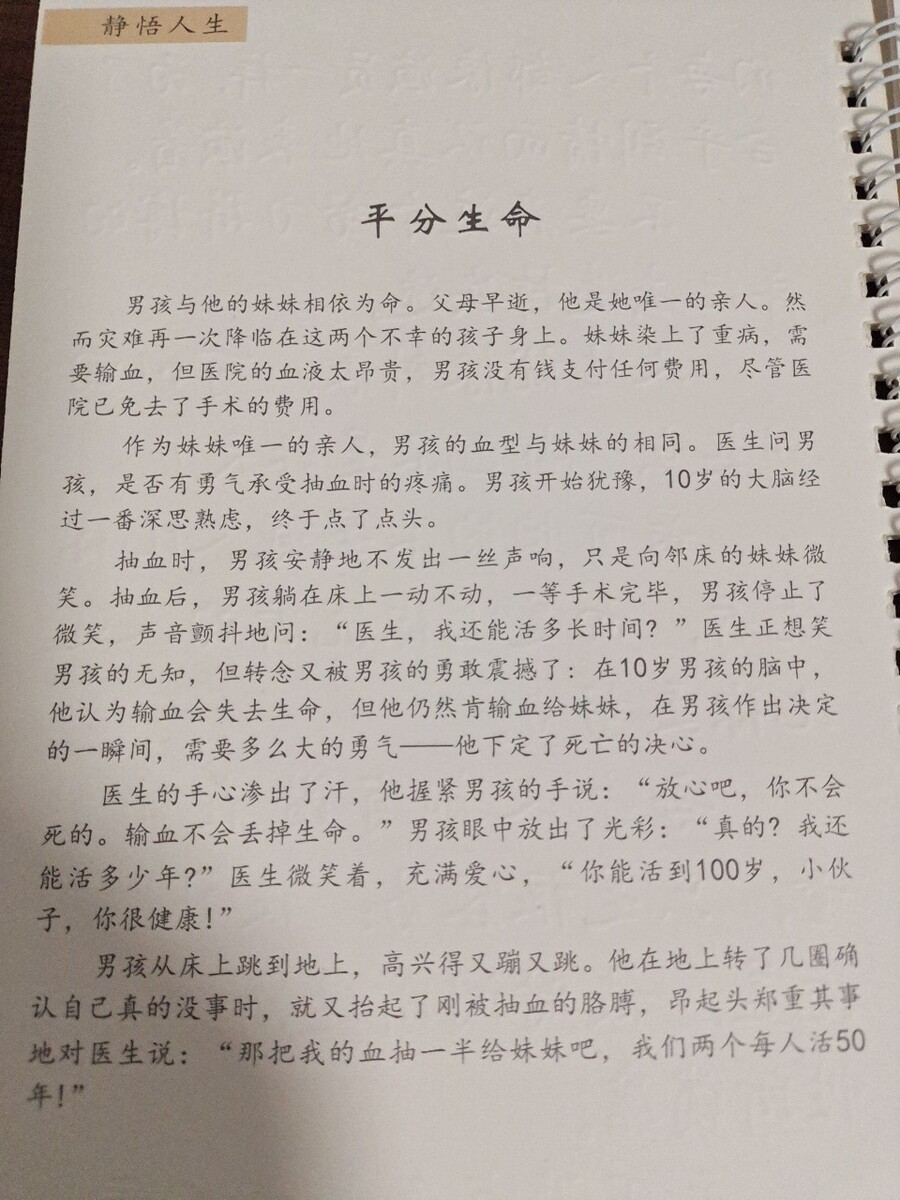 静悟人生
平分生命
男孩与他的妹妹相依为命。父母早逝，他是她唯一的亲人。然
而灾难再一次降临在这两个不幸的孩子身上。妹妹染上了重病，需
要输血，但医院的血液太昂贵，男孩没有钱支付任何费用，尽管医
院已免去了手术的费用。
作为妹妹唯一的亲人，男孩的血型与妹妹的相同。医生问男
孩，是否有勇气承受抽血时的疼痛。男孩开始犹豫，10岁的大脑经
过一番深思熟虑，终于点了点头。
抽血时，男孩安静地不发出一丝声响，只是向邻床的妹妹微
笑。抽血后，男孩躺在床上一动不动，一等手术完毕，男孩停止了
微笑，声音颤抖地问：“医生，我还能活多长时间？”医生正想笑
男孩的无知，但转念又被男孩的勇敢震撼了：在10岁男孩的脑中，
他认为输血会失去生命，但他仍然肯输血给妹妹，在男孩作出决定
的一瞬间，需要多么大的勇气——他下定了死亡的决心。
医生的手心渗出了汗，他握紧男孩的手说：“放心吧，你不会
死的。输血不会丢掉生命。”男孩眼中放出了光彩：“真的？我还
能活多少年?”医生微笑着，充满爱心，“你能活到100岁，小伙
子，你很健康!”
男孩从床上跳到地上，高兴得又蹦又跳。他在地上转了几圈确
认自己真的没事时，就又抬起了刚被抽血的胳膊，昂起头郑重其事
地对医生说：“那把我的血抽一半给妹妹吧，我们两个每人活50
年!”